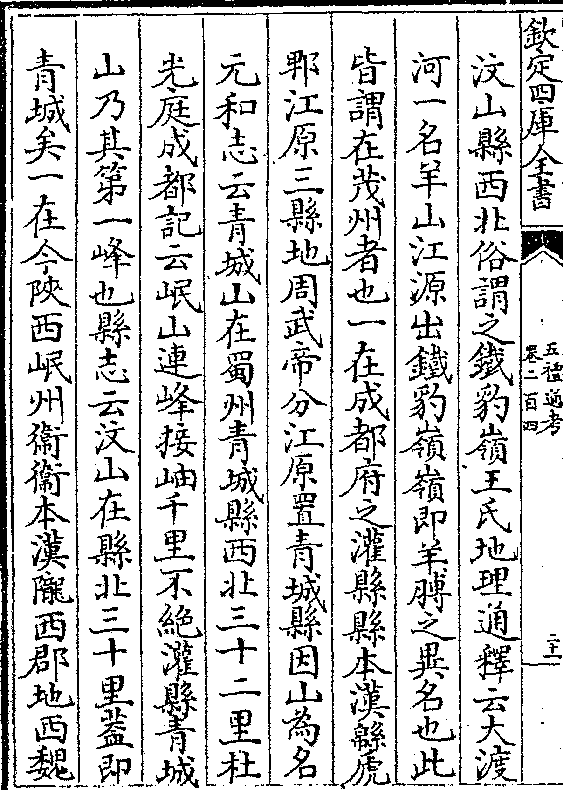 欽定四庫全書
五禮通考
卷二百四
二十一
汶山縣西北俗謂之鐵豹嶺王氏地理通釋云大渡
河一名羊山江源出鐵豹嶺嶺即羊膊之異名也此
皆謂在茂州者也一在成都府之灌縣縣本漢緜虒
郫江原三縣地周武帝分江原置青城縣因山為名
元和志云青城山在蜀州青城縣西北三十二里杜
光庭成都記云岷山連峰接岫千里不絕灌縣青城
山乃其第一峰也縣志云汶山在縣北三十里葢即
青城矣一在今陜西岷州衞衞本漢隴西郡地西魏